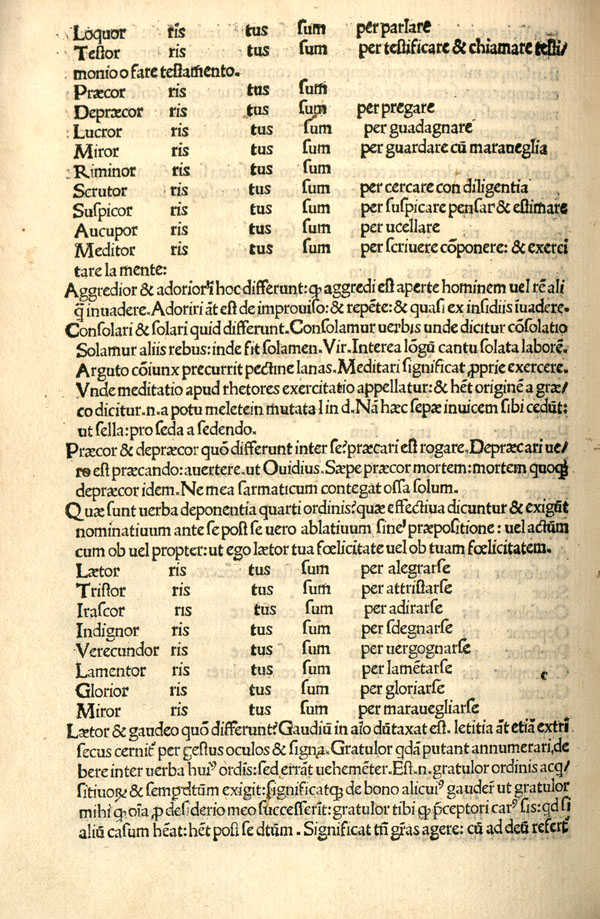 Loquor ris tus sum per parlare
Testor ris tus sum per testificare & chiamare testi/
monio o fare testamento.
Præcor ris tus sum
Depræcor ris tus sum per pregare
Lucror ris tus sum per guadagnare
Miror ris tus sum per guardare cū maraueglia
Riminor ris tus sum
Scrutor ris tus sum per cercare con diligentia
Suspicor ris tus sum per suspicare pensar & estimare
Aucupor ris tus sum per ucellare
Meditor ris tus sum per scriuere cōponere: & exerci
tare la mente:
Aggredior & adorior ī hoc differunt: ꝙ aggredi est aperte hominem uel rē ali
q̄ inuadere. Adoriri āt est de improuiso: & repēte: & quasi ex insidiis iuadere.
Consolari & solari quid differunt. Consolamur uerbis unde dicitur cōsolatio
Solamur aliis rebus: inde fit solamen. Vir. Interea lōgū cantu solata laborē.
Arguto cōiunx precurrit pectine lanas. Meditari significat ꝓprie exercere.
Vnde meditatio apud rhetores exercitatio appellatur: & hēt originē a græ/
co dicitur .n. a potu meletein mutata l in d. Nā hæc sepæ inuicem sibi cedūt:
ut sella: pro seda a sedendo.
Præcor & depræcor quō differunt inter se? præcari est rogare. Depræcari ue/
ro est præcando: auertere. ut Ouidius. Sæpe præcor mortem: mortem quoqꝫ
depræcor idem. Ne mea sarmaticum contegat ossa solum.
Quæ sunt uerba deponentia quarti ordinis? quæ effectiua dicuntur & exigūt
nominatiuum ante se post se uero ablatiuum sine præpositione: uel actūm
cum ob uel propter: ut ego lætor tua fœlicitate uel ob tuam fœlicitatem.
Lætor ris tus sum per alegrarse
Tristor ris tus sum per attristarse
Irascor ris tus sum per adirarse
Indignor ris tus sum per sdegnarse
Verecundor ris tus sum per uergognarse
Lamentor ris tus sum per lamētarse
Glorior ris tus sum per gloriarse
Miror ris tus sum per marauegliarse
Lætor & gaudeo quō differunt? Gaudiū in aīo dūtaxat est. letitia āt etiā extri
secus cernit᷑ per gestus oculos & signa. Gratulor qdā putant annumerari, de
bere inter uerba huiꝰ ordīs: sed errāt uehemēter. Est .n. gratulor ordinis acq/
sitiuoꝝ & semp dtūm exigit: significatqꝫ de bono alicuiꝰ gauder̄ ut gratulor
mihi ꝙ oīa ꝓ desiderio meo successerīt: gratulor tibi ꝙ p̄ceptori carꝰ sis: qd si
aliū casum hēat: hēt post se dtūm. Significat tn̄ gr̄as agere: cū ad deū refert᷑